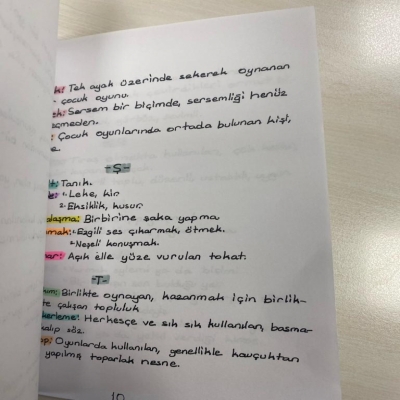 k: Tek ayak üzerinde sekerek oynanan
çocuk oyunu.
ek: Sersem bir biçimde, sersemliği henüz
açmeden.
: Çocuk oyunlarında ortada bulunan kişi,
e.
-Ş-
t: Tanık.
e: 1. Leke, kir
2. Eksiklik, kusur.
alaşma: Birbirine şaka yapma
mak: 1. Ezgili ses çıkarmak, ötmek.
2. Neşeli konuşmak.
ar: Açık elle yüze vurulan tokat.
-T-
ım: Birlikte oynayan, kazanmak için birlik-
te çalışan topluluk
kerleme: Herkesçe ve sık sık kullanılan, basma-
kalıp söz.
op: Oyunlarda kullanılan, genellikle kauçuktan
yapılmış toparlak nesne.
10